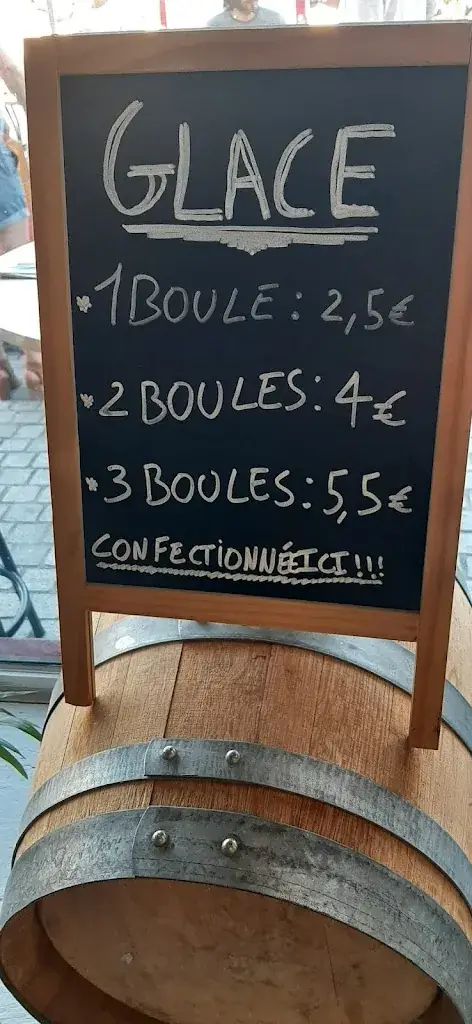 GLACE
* 1 BOULE : 2,5€
* 2 BOULES : 4€
* 3 BOULES : 5,5€
CONFECTIONNÉE ICI !!!